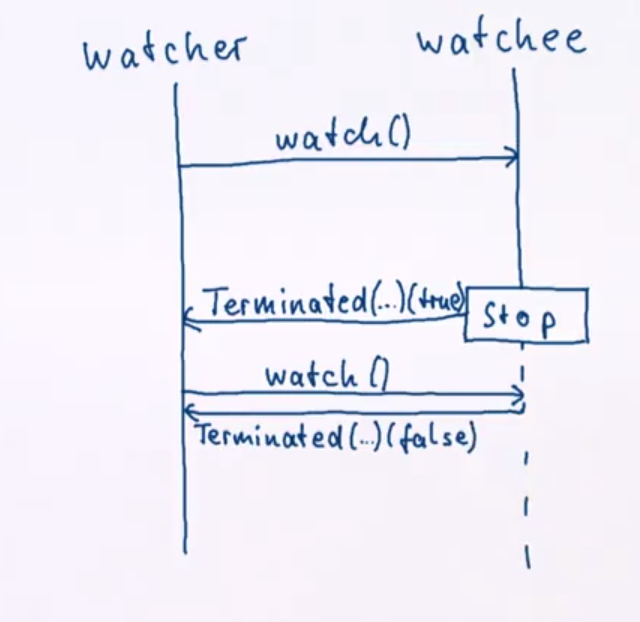 watcher
watchee
watch()
Terminated(...)(true)
Stop
watch()
Terminated(...)(false)